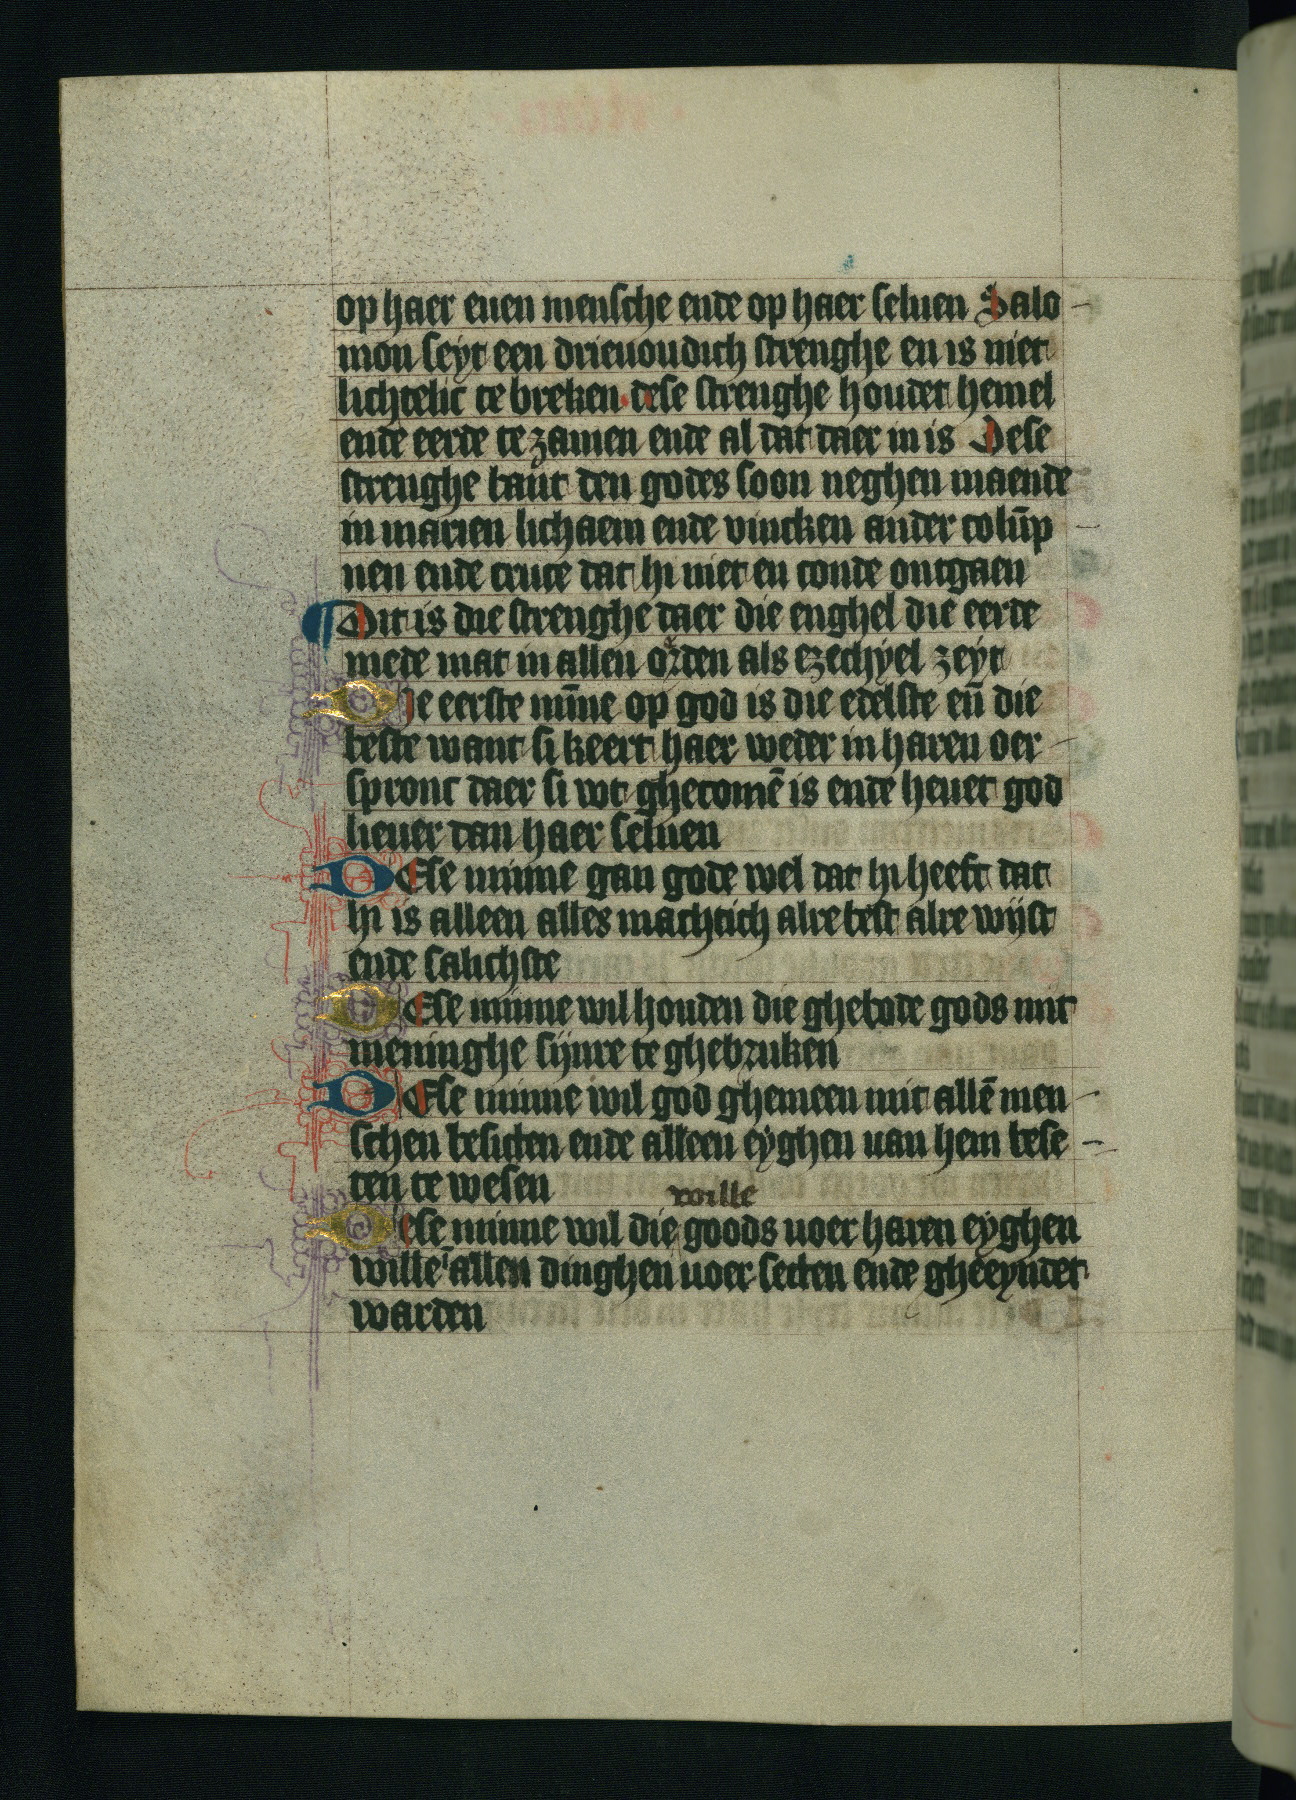 op haer euen mensche ende op haer seluen Salo
mon seyt een drieuoudich strenghe en is niet
lichtelic te breken dese strenghe houdet hemel
ende eerde te zamen ende al dat daer in is Dese
strenghe bant den godes soon neghen maende
in marien lichaem ende vincken ander colūp
nen ende cruce dat hi niet en conde ontgaen
Dit is die strenghe daer die enghel die eerde
mede mat in allen orden als ezechyel zeyt
Die eerste mīne op god is die edelste eñ die
beste want si keert haer weder in haren oer
spronc daer si wt ghecomē is ende heuet god
lieuer dan haer seluen
DEse minne gan gode wel dat hi heeft dat
hi is alleen alles machtich alrebest alre wijst
ende salichste
DEse minne wil houden die ghebode gods mit
meninghe sijnre te ghebruken
DEse minne wil god ghemeen mit allē men
schen besitten ende alleen eyghen uan hem bese
ten te wesen
wille
Dese minne wil die goods uoer haren eyghen
wille ī allen dinghen uoer setten ende gheeyndet
warden